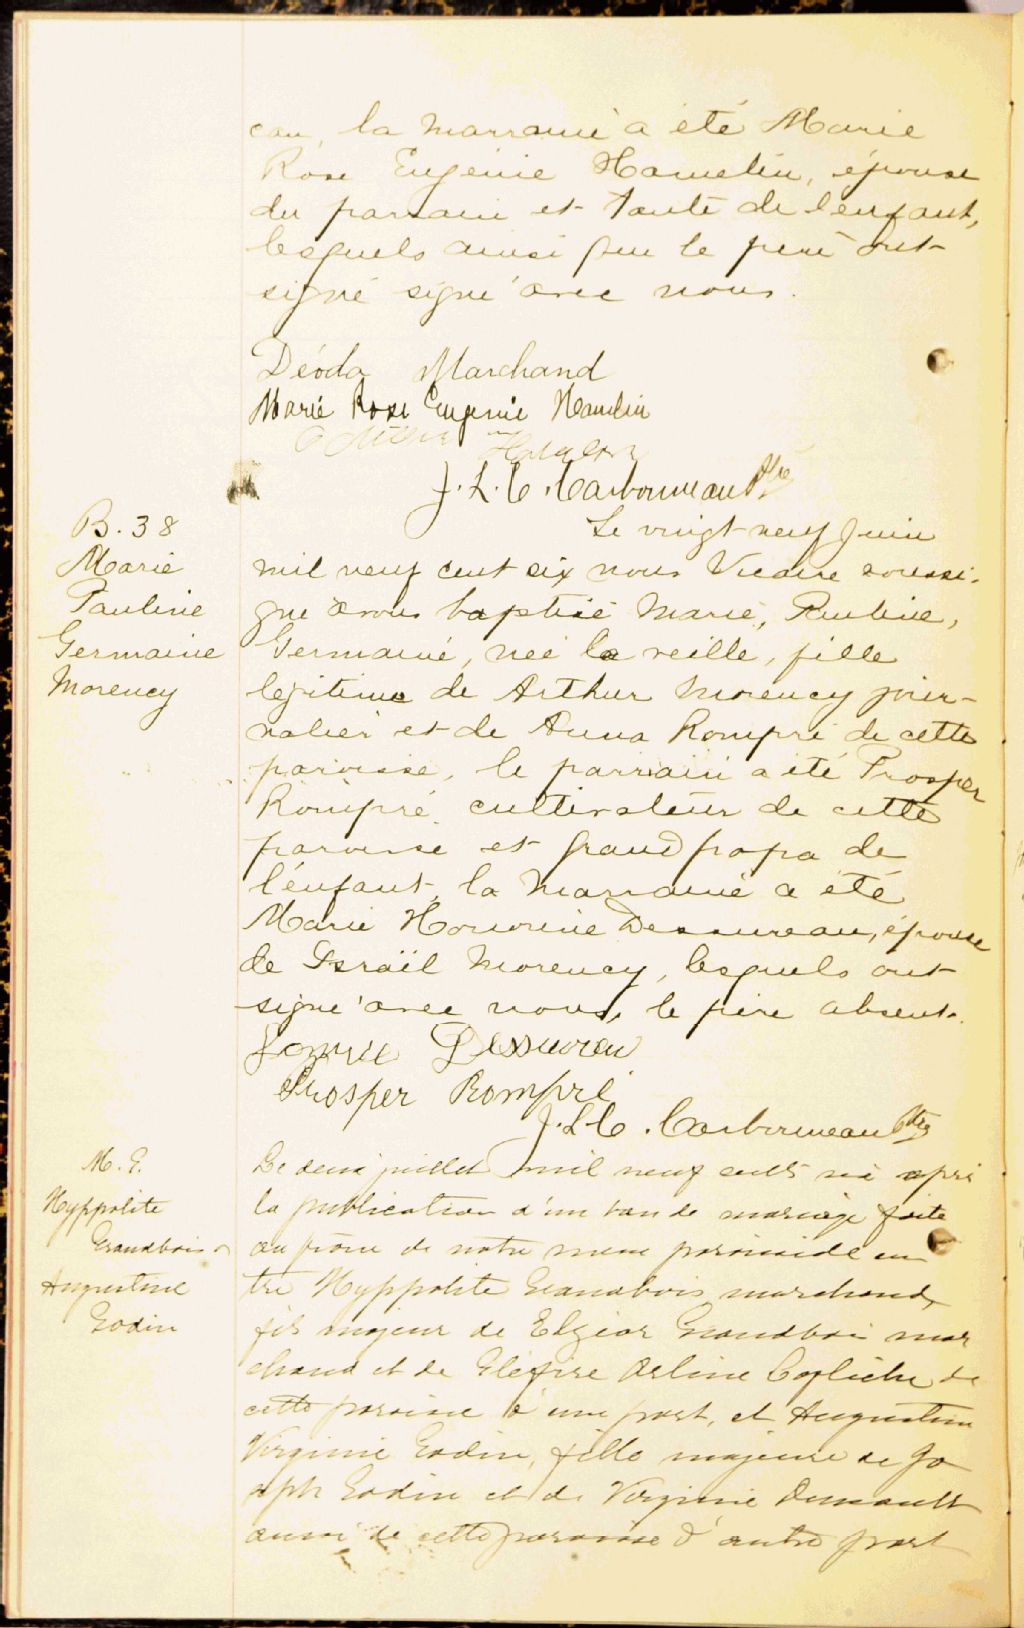 eau, la marraine a été Marie
Rose Eugénie Hamelin, épouse
du parrain et tante de l'enfant,
lesquels ainsi que le père ont
signé signé avec nous.
Déoda Marchand
Marie Rose Eugenie Hamelin
J. L. C. Carbonneau Ptre
Le vingt-neuf Juin
B. 38
Marie
Pauline
Germaine
Morency
mil neuf cent six nous Vicaire soussi-
gné avons baptisé Marie, Pauline,
Germaine, née la veille, fille
légitime de Arthur Morency jour-
nalier et de Anna Rompré de cette
paroisse, le parrain a été Prosper
Rompré cultivateur de cette
paroisse et grand papa de
l'enfant, la marraine a été
Marie Honorine Dessureau, épouse
de Israël Morency, lesquels ont
signé avec nous, le père absent.
Dessureau
Prosper Rompré
J. L. C. Carbonneau Ptre
M. 9.
Hyppolite
Grandbois &
Augustine
Godin
Le deux juillet mil neuf cents six après
la publication d'un ban de mariage faite
au prône de notre messe paroissiale en
tre Hyppolite Grandbois marchand,
fils majeur de Elzéar Grandbois mar
chand et de Arline de
cette paroisse d'une part, et Augustine
Virginie Godin, fille majeure de Jo
seph Godin et de Virginie
aussi de cette paroisse d'autre part